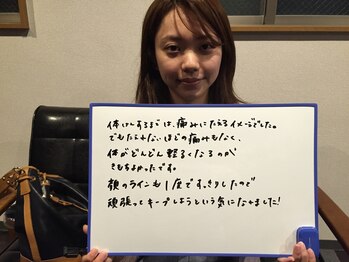 体験するまでは、痛みにたえるイメージでした。
でもたえれないほどの痛みもなく、
体がどんどん軽くなるのが
きもちよかったです。
顔のラインも1度ですっきりしたので
頑張ってキープしようという気になれました!